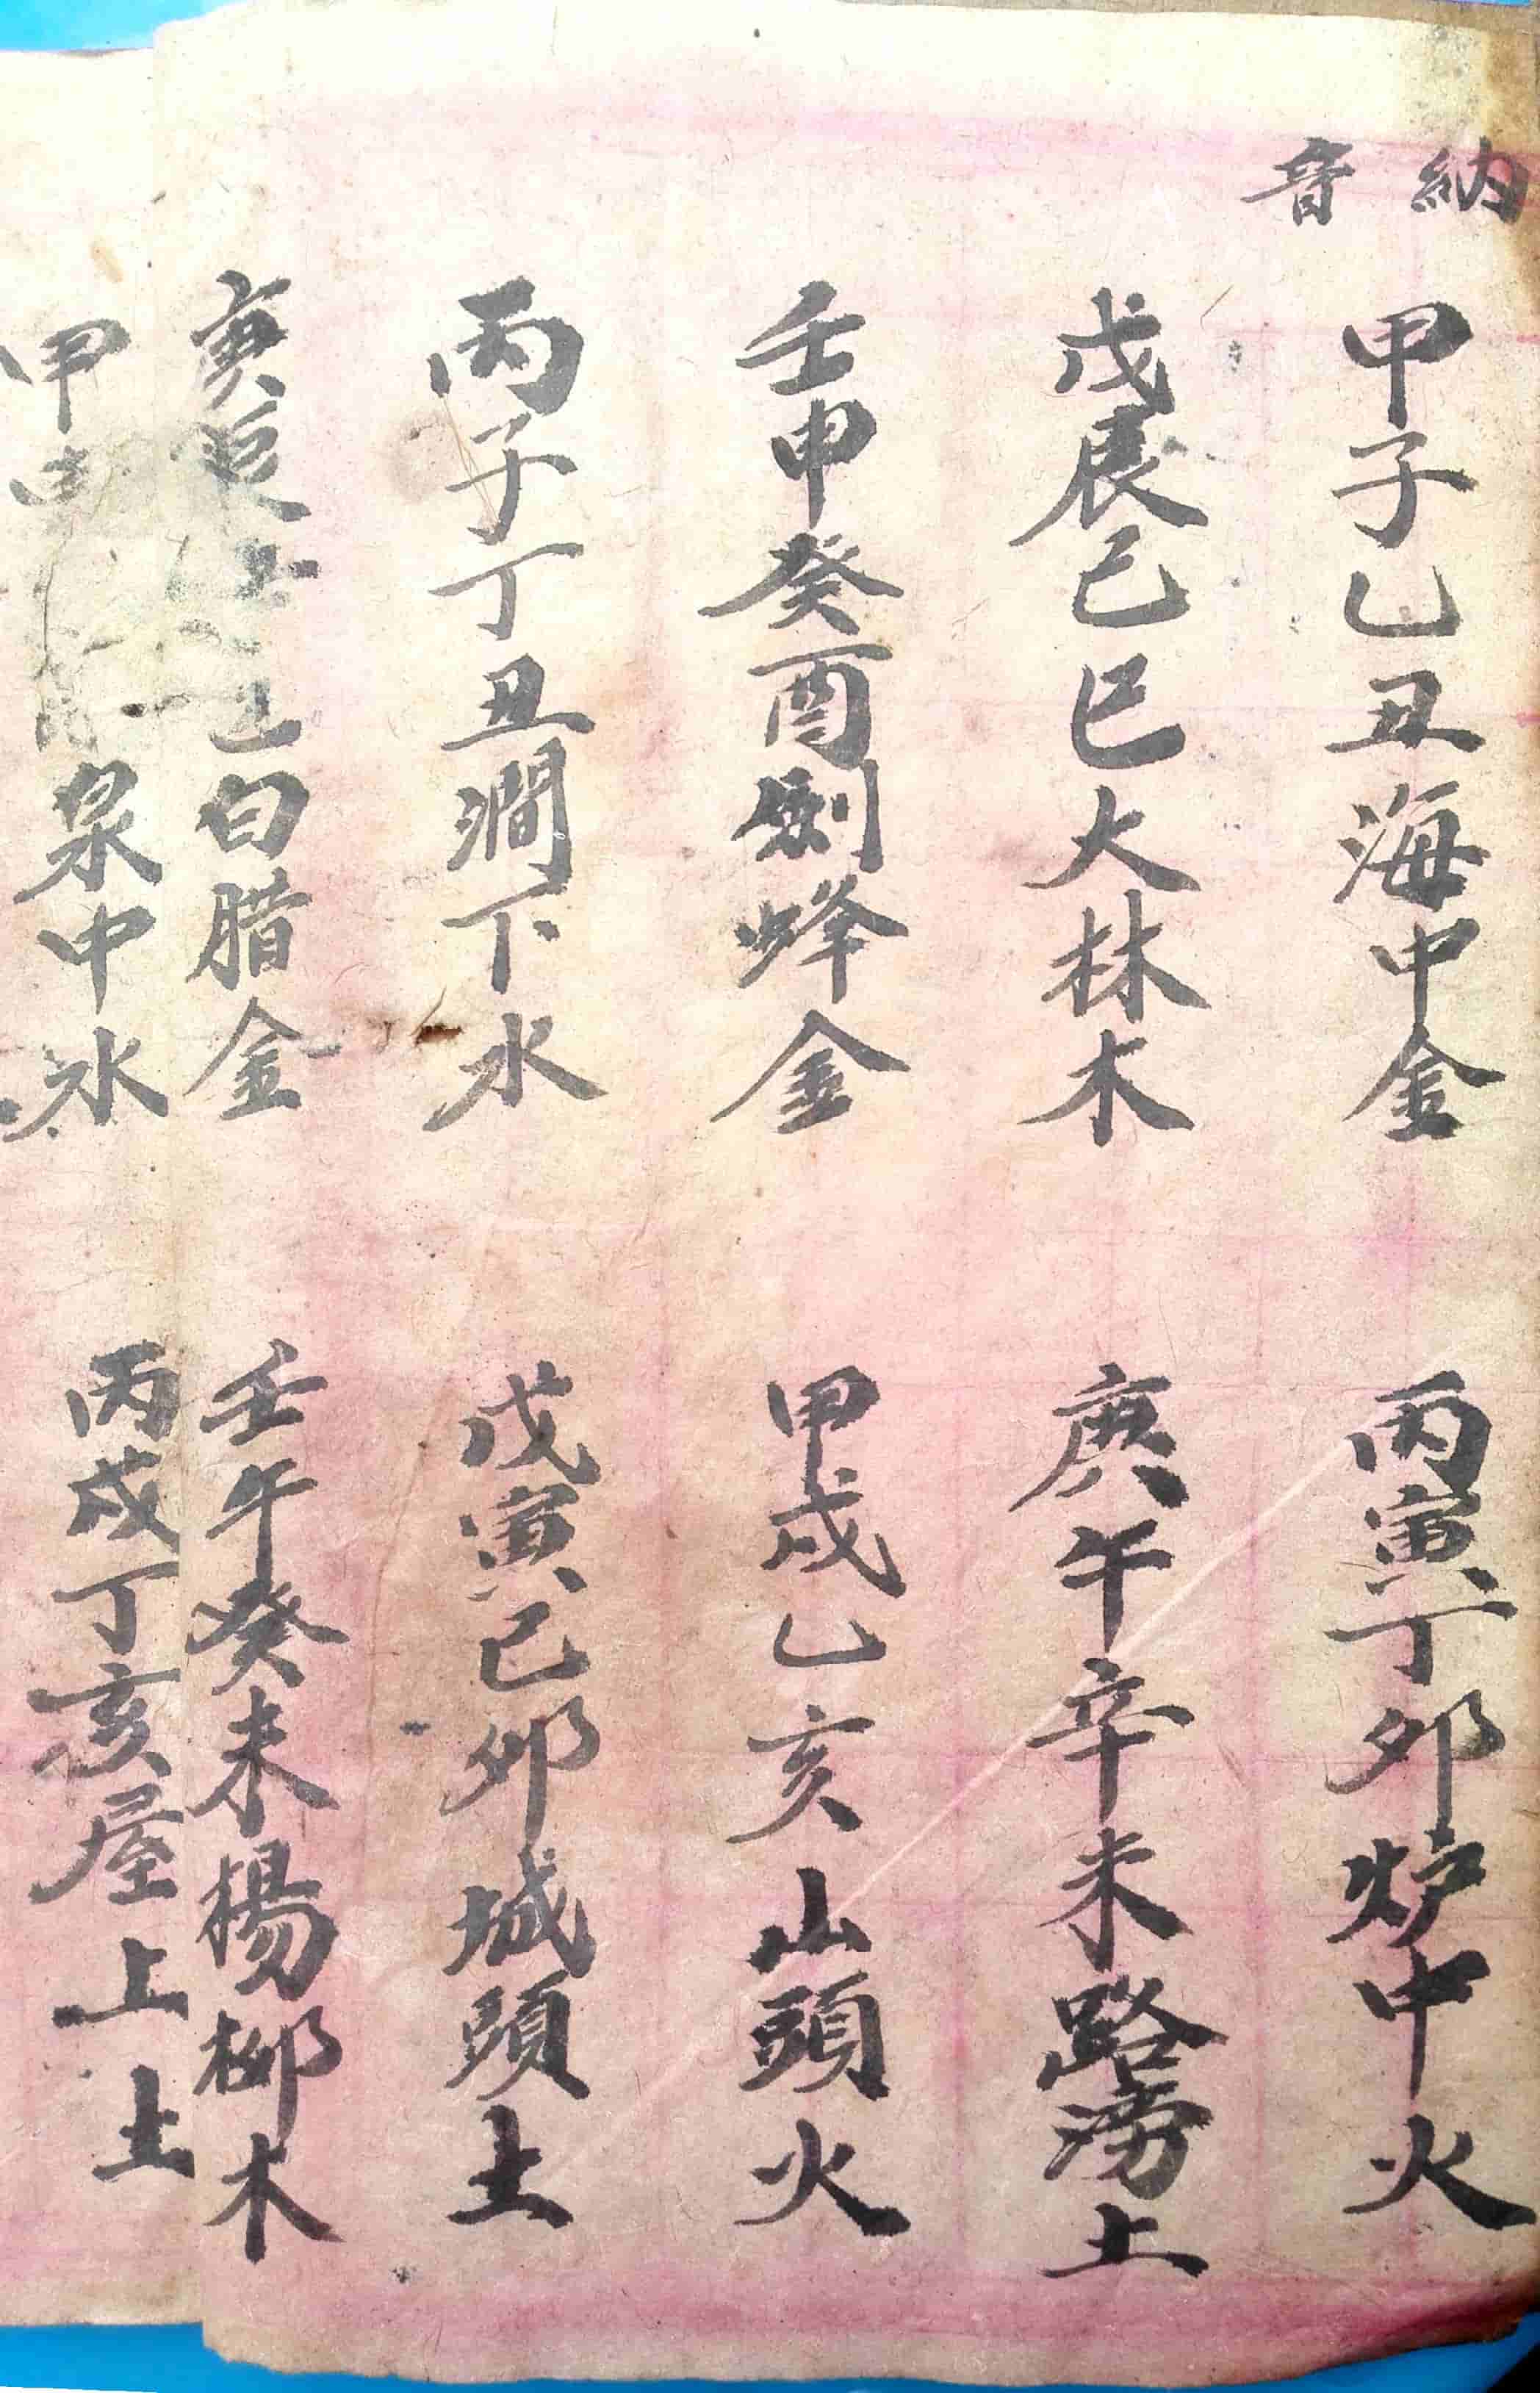 納音
甲子乙丑海中金
丙寅丁卯炉中火
戊辰己巳大林木
庚午辛未路滂土
壬申癸酉劍蜂金
甲戌乙亥山頭火
丙子丁丑澗下水
戊寅己卯城頭土
庚辰白腊金
壬午癸未楊柳木
甲申泉中水
丙戌丁亥屋上土